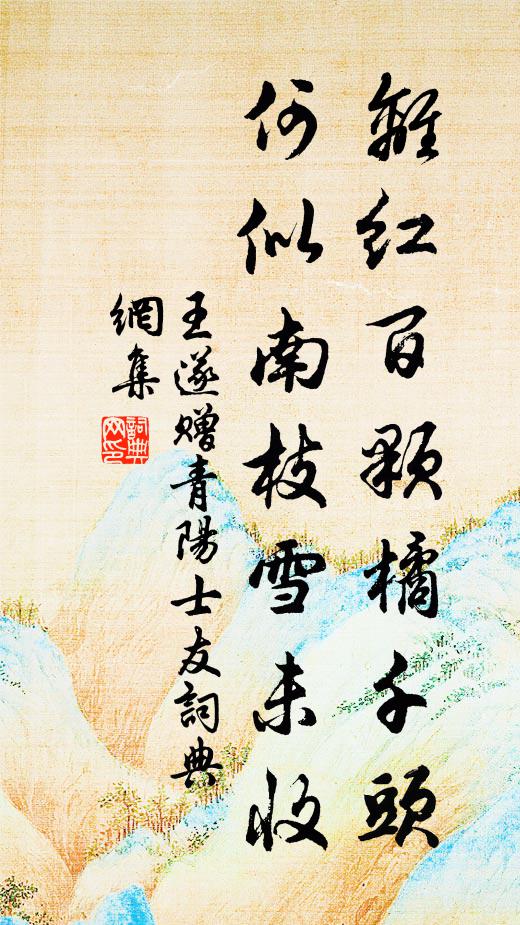 離紅百顆橘千頭
何似南枝雪未收
王遂贈青陽士友詞典
網集
詞典
网印